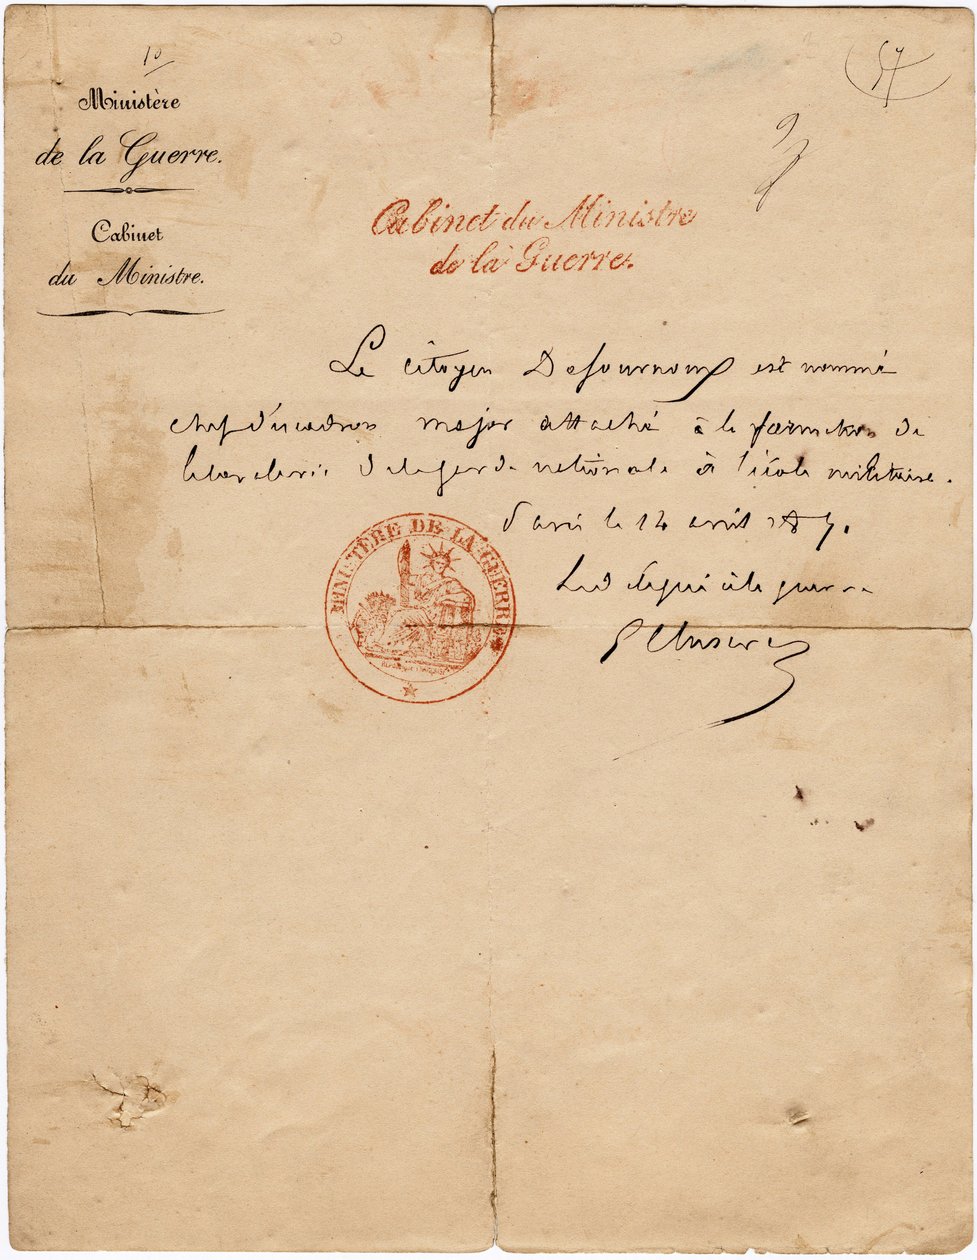 10
57
Ministère
de la Guerre.
Cabinet
du Ministre.
Cabinet du Ministre
de la Guerre.
Le citoyen Defournoux est nommé
chef d'escadron major attaché à la formation de
la cavalerie de la garde nationale à l'école militaire.
Paris le 14 avril 1871.
Le délégué à la guerre
G Cluseret
MINISTÈRE DE LA GUERRE